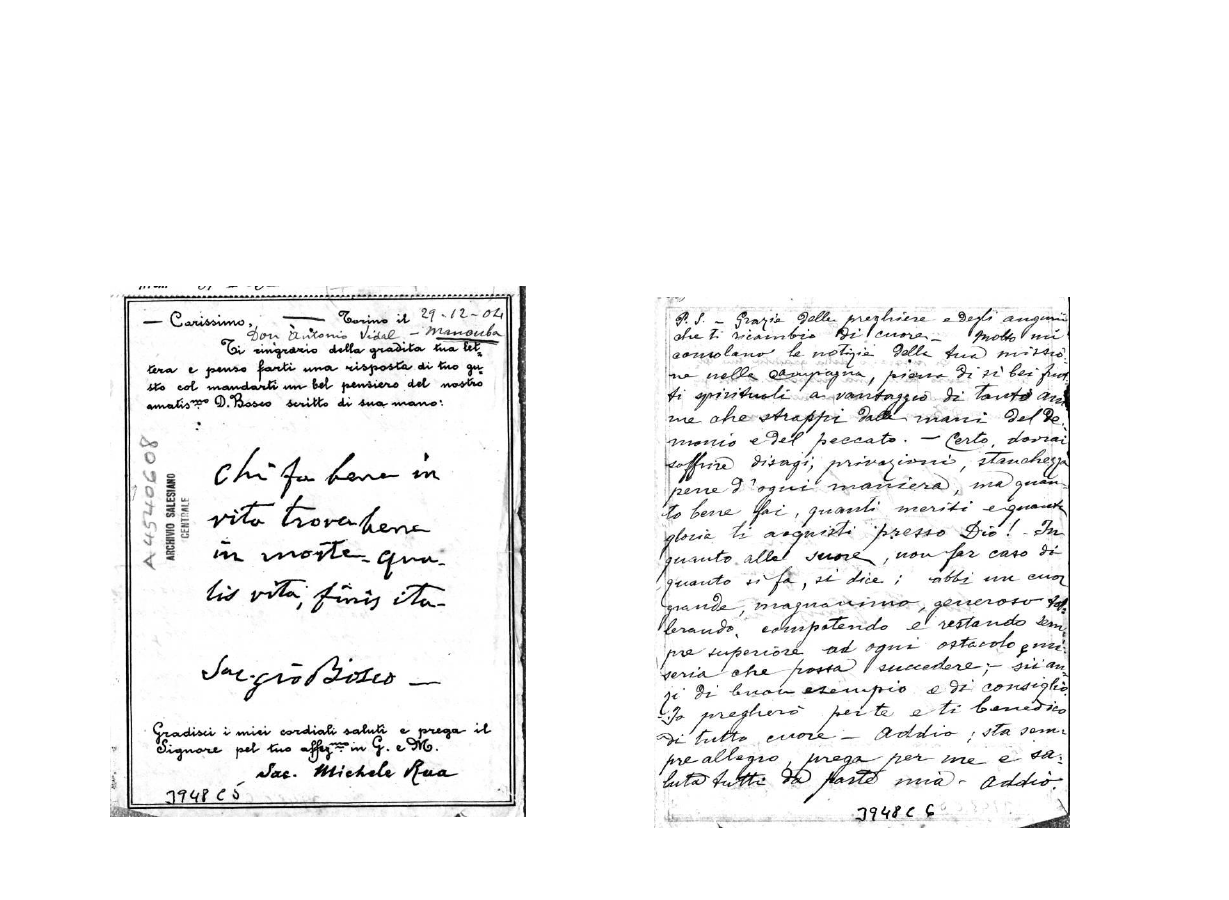 — Carissimo, — Torino il 29-12-04
Don Antonio Vidal - Manouba
Ti ringrazio della gradita tua let-
tera e penso farti una risposta di tuo gu-
sto col mandarti un bel pensiero del nostro
amatis.mo D. Bosco scritto di sua mano:
Chi fa bene in
vita trova bene
in morte - qua-
lis vita, finis ita -
Sac. Gio Bosco —
Gradisci i miei cordiali saluti e prega il
Signore pel tuo affez.mo in G. e M.
Sac. Michele Rua
J948 C 5
A4540608
ARCHIVIO SALESIANO
CENTRALE
P. S. - Grazie delle preghiere e degli augurii
che ti ricambio di cuore - Molto mi
consolano le notizie della tua missio-
ne nella campagna, piena di sì bei frut-
ti spirituali a vantaggio di tante ani-
me che strappi dalle mani del De-
monio e del peccato. - Certo, dovrai
soffrire disagi, privazioni, stanchezza
pene d'ogni maniera, ma quan-
to bene fai, quanti meriti e quanta
gloria ti acquisti presso Dio! In
quanto alle suore, non far caso di
quanto si fa, si dice; abbi un cuor
grande, magnanimo, generoso tol-
lerando, compatendo e restando sem-
pre superiore ad ogni ostacolo e mi-
seria che possa succedere; - sii an-
zi di buon esempio e di consiglio
Io pregherò per te e ti benedico
di tutto cuore - Addio; sta sem-
pre allegro, prega per me e sa-
luta tutti da parte mia - Addio.
J948 C 6